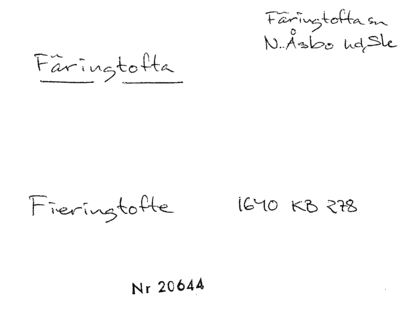 Färingtofta sn
N. Åsbo hd, Sk
Färingtofta
Fieringtofte 1640 KB 278
Nr 20644